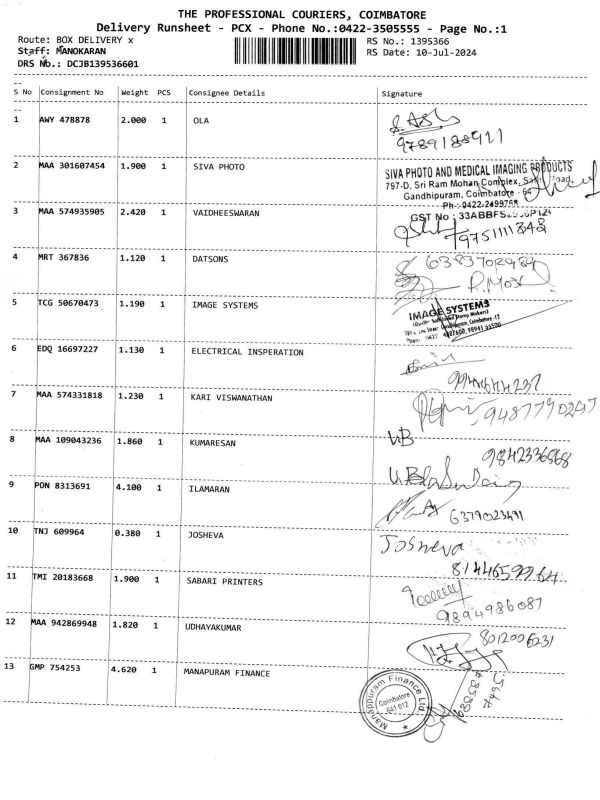 THE PROFESSIONAL COURIERS, COIMBATORE
Delivery Runsheet - PCX - Phone No.:0422-3505555 - Page No.:1
Route: BOX DELIVERY x
RS No.: 1395366
Staff: MANOKARAN
RS Date: 10-Jul-2024
DRS No.: DCJB139536601
S No Consignment No Weight PCS Consignee Details Signature
1 AWY 478878 2.000 1 OLA
9789188911
2 MAA 301607454 1.900 1 SIVA PHOTO
SIVA PHOTO AND MEDICAL IMAGING PRODUCTS
797-D, Sri Ram Mohan Complex,
Gandhipuram, Coimbatore
Ph: 0422-2499758
3 MAA 574935905 2.420 1 VAIDHEESWARAN
GST No
9751111848
4 MRT 367836 1.120 1 DATSONS
5 TCG 50670473 1.190 1 IMAGE SYSTEMS
IMAGE SYSTEMS
6 EDQ 16697227 1.130 1 ELECTRICAL INSPERATION
7 MAA 574331818 1.230 1 KARI VISWANATHAN
9487790247
8 MAA 109043236 1.860 1 KUMARESAN
9842336868
9 PON 8313691 4.100 1 ILAMARAN
6379023491
10 TNJ 609964 0.380 1 JOSHEVA
Josheva
8144659964
11 TMI 20183668 1.900 1 SABARI PRINTERS
9894986087
12 MAA 942869948 1.820 1 UDHAYAKUMAR
8012006231
13 GMP 754253 4.620 1 MANAPURAM FINANCE
Manappuram Finance Ltd
Coimbatore
641 012